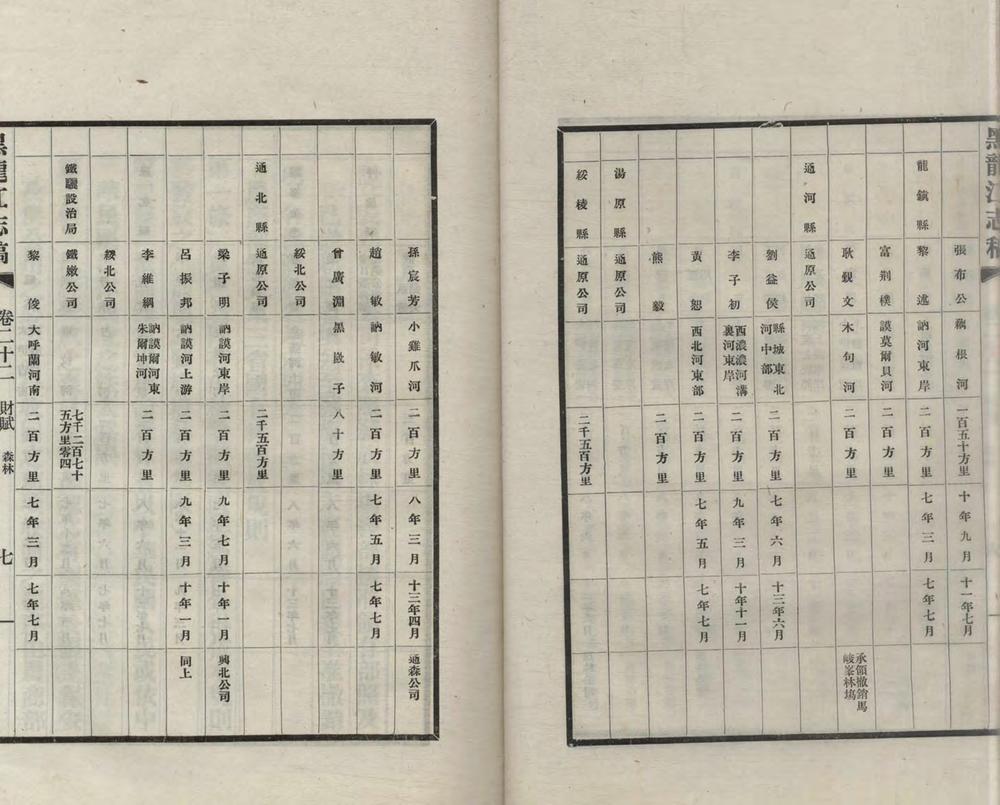 黑龍江志稿
張布公 藕根河 一百五十方里 十年九月 十一年七月
龍鎮縣 黎逵 訥河東岸 二百方里 七年三月 七年七月
富荆樸 謨莫爾貝河
耿覲文 木句河 二百方里 承領撤銷馬峻峯林塲
通河縣 通原公司
劉益侯 縣城東北河中部 二百方里 七年六月 十三年六月
李子初 西浪濃河溝裏河東岸 二百方里 九年三月 十年十一月
黃恕 西北河東部 二百方里 七年五月 七年七月
熊毅 二百方里
湯原縣 通原公司
綏稜縣 通原公司 二千五百方里
孫宸芳 小雞爪河 二百方里 八年三月 十三年四月 通森公司
趙敏 訥敏河 二百方里 七年五月 七年七月
曾廣淵 黑嶔子 八十方里
綏北公司
通北縣 通原公司 二千五百方里
梁子明 訥謨河東岸 二百方里 九年七月 十年一月 興北公司
呂振邦 訥謨河上游 二百方里 九年三月 十年一月 同上
李維綱 訥謨爾河東朱爾坤河 二百方里
綏北公司
鐵驪設治局 鐵嫩公司 七千二百七十五方里零四
黎俊 大呼蘭河南 二百方里 七年三月 七年七月
黑龍江志稿 卷二十二 財賦 森林 七